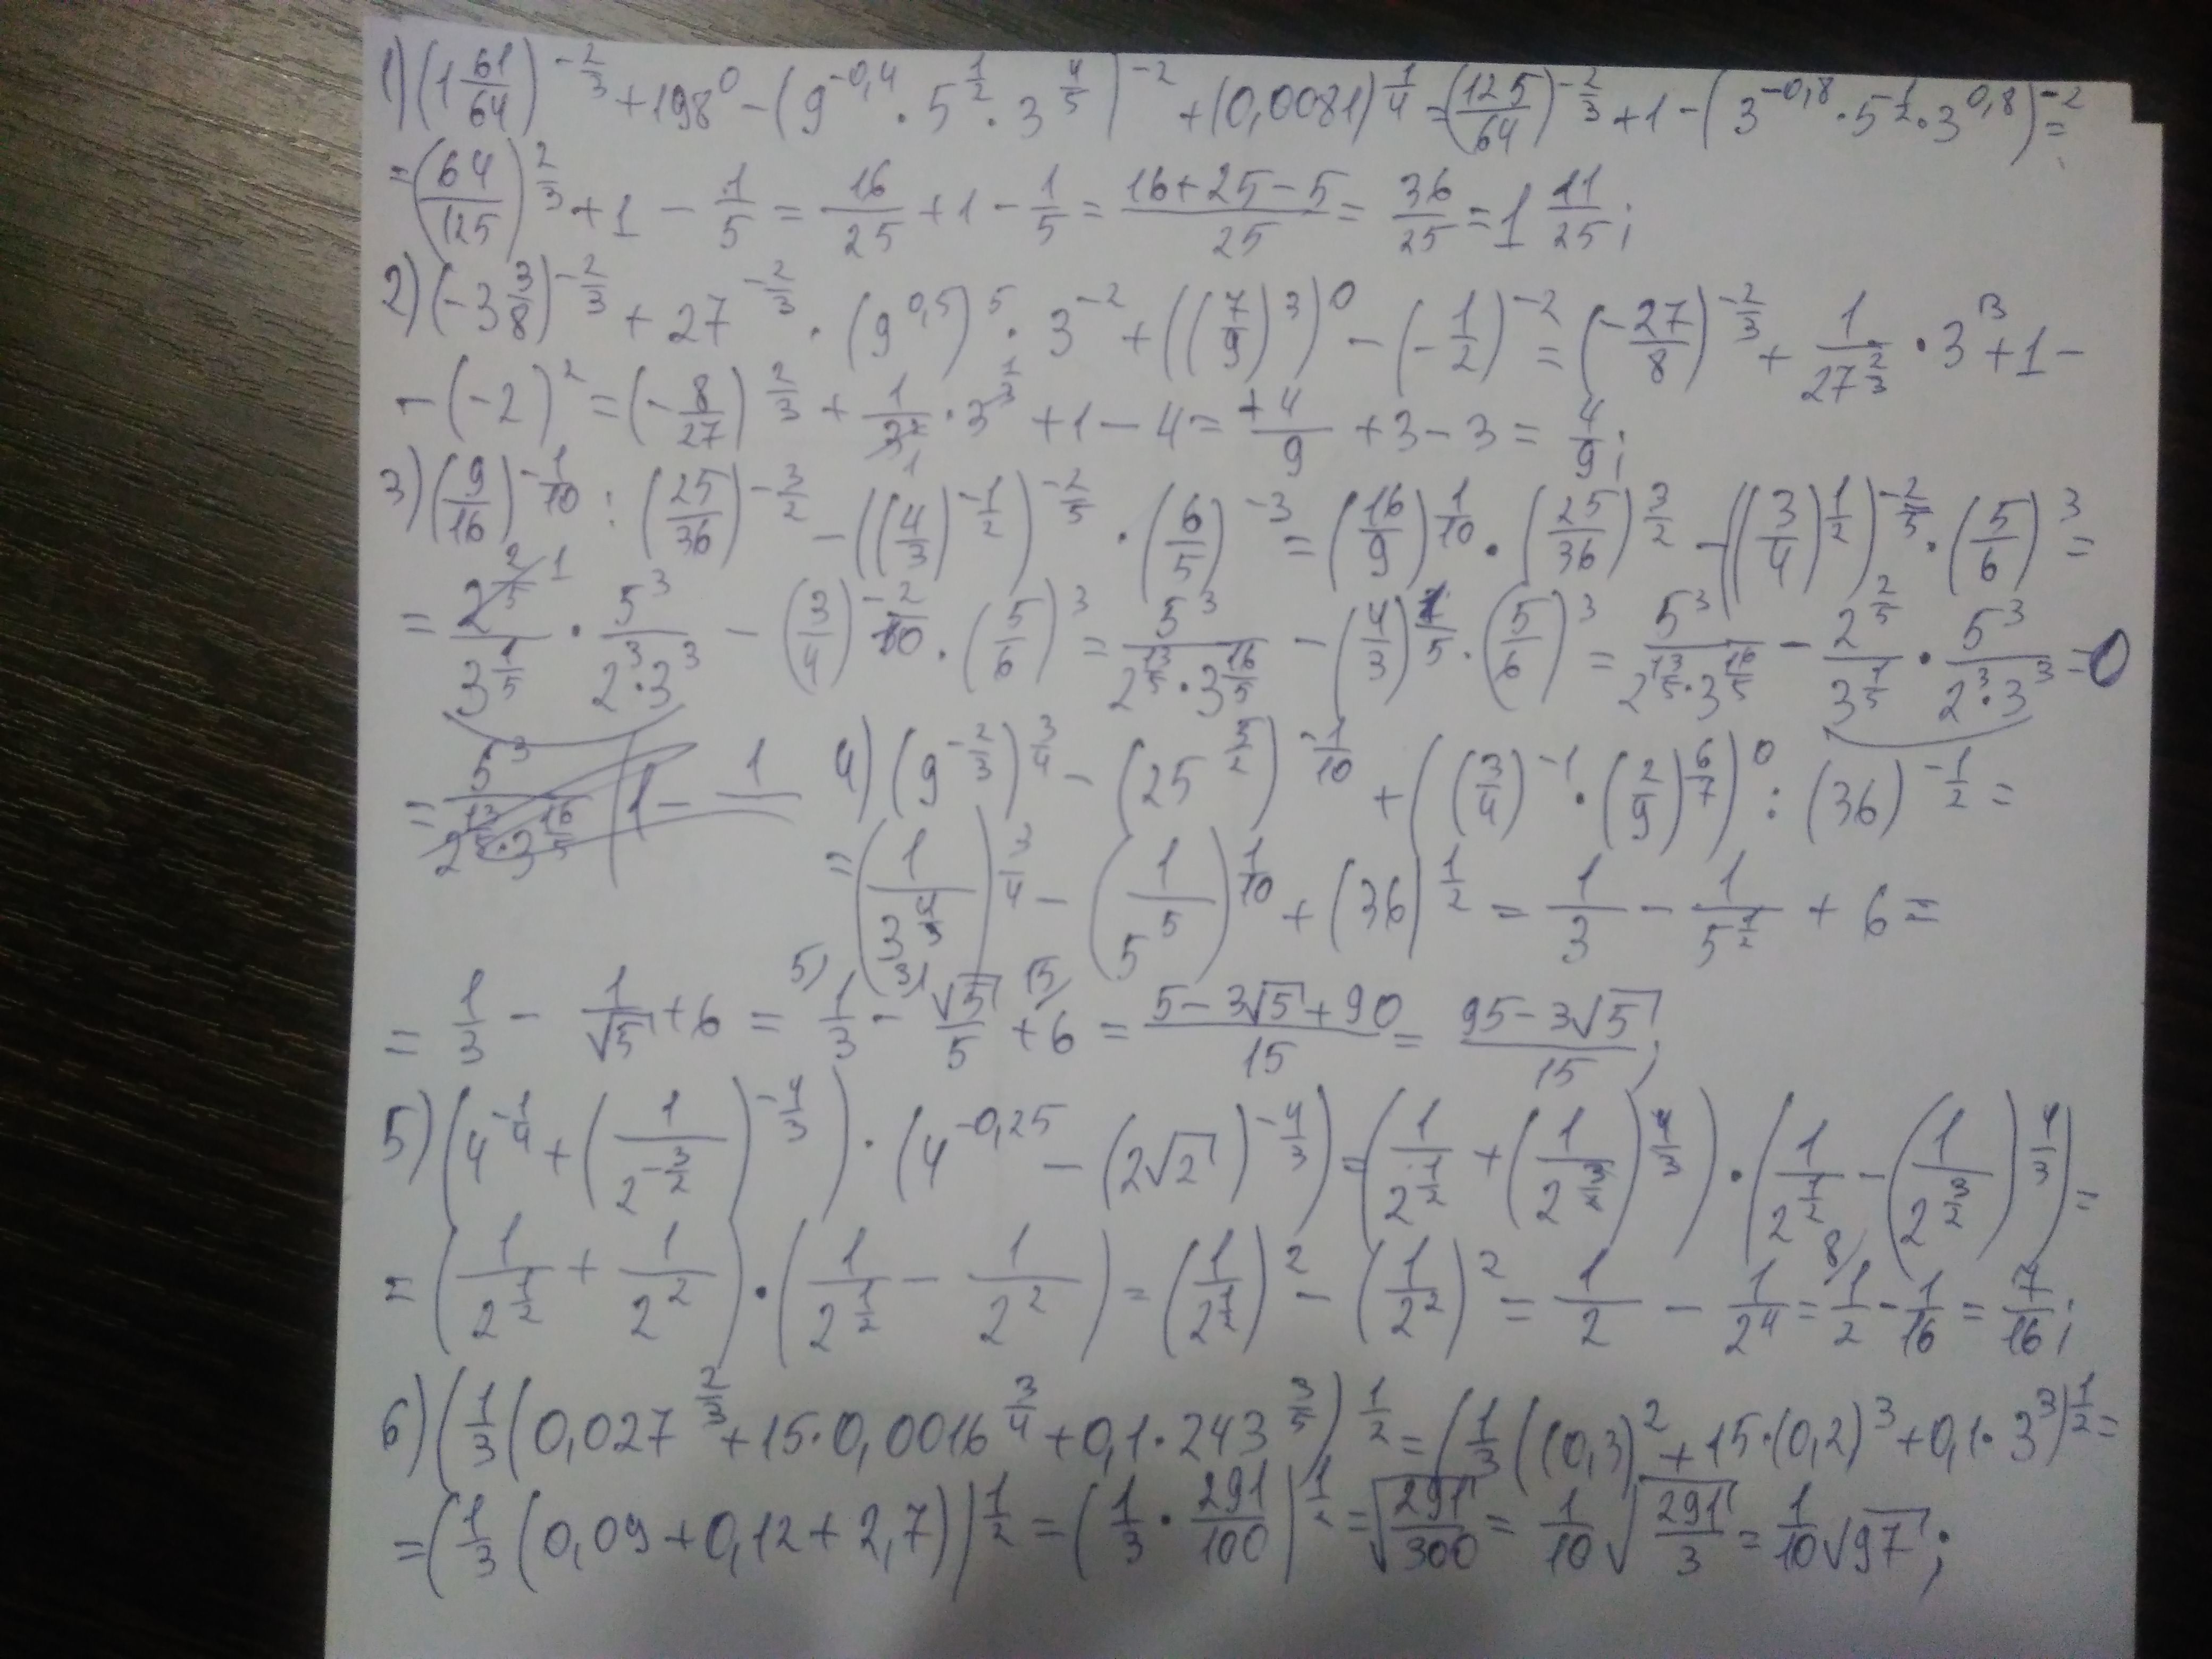 1) (1 61/64)^(-2/3) + 198^0 - (9^(-0,4) · 5^(1/2) · 3^(4/5))^(-2) + (0,0081)^(1/4) = (125/64)^(-2/3) + 1 - (3^(-0,8) · 5^(1/2) · 3^(0,8))^(-2) =
= (64/125)^(2/3) + 1 - 1/5 = 16/25 + 1 - 1/5 = (16+25-5)/25 = 36/25 = 1 11/25;
2) (-3 3/8)^(-2/3) + 27^(-2/3) · (9^(0,5))^5 · 3^(-2) + ((7/9)^3)^0 - (-1/2)^(-2) = (-27/8)^(-2/3) + 1/27^(2/3) · 3^3 + 1 -
- (-2)^2 = (-8/27)^(2/3) + 1/3^2 · 3^3 + 1 - 4 = +4/9 + 3 - 3 = 4/9;
3) (9/16)^(-1/10) : (25/36)^(-3/2) - ((4/3)^(-1/2))^(-2/5) · (6/5)^(-3) = (16/9)^(1/10) · (25/36)^(3/2) - ((3/4)^(1/2))^(-2/5) · (5/6)^3 =
= 2^(2/5)/3^(1/5) · 5^3/(2^3·3^3) - (3/4)^(-2/10) · (5/6)^3 = 5^3/(2^(13/5)·3^(16/5)) - (4/3)^(1/5) · (5/6)^3 = 5^3/(2^(13/5)·3^(16/5)) - 2^(2/5)/3^(1/5) · 5^3/(2^3·3^3) = 0
= 5^3/(2^(13/5)·3^(16/5)) (1 - 1
4) (9^(-2/3))^(3/4) - (25^(5/2))^(-1/10) + ((3/4)^(-1) · (2/9)^(6/7))^0 : (36)^(-1/2) =
= (1/3^(4/3))^(3/4) - (1/5^5)^(1/10) + (36)^(1/2) = 1/3 - 1/5^(1/2) + 6 =
= 1/3 - 1/√5 + 6 = 1/3 - √5/5 + 6 = (5-3√5+90)/15 = (95-3√5)/15;
5) (4^(-1/4) + (1/2^(-3/2))^(-4/3)) · (4^(-0,25) - (2√2)^(-4/3)) = (1/2^(1/2) + (1/2^(3/2))^(4/3)) · (1/2^(1/2) - (1/2^(3/2))^(4/3)) =
= (1/2^(1/2) + 1/2^2) · (1/2^(1/2) - 1/2^2) = (1/2^(1/2))^2 - (1/2^2)^2 = 1/2 - 1/2^4 = 1/2 - 1/16 = 7/16;
6) (1/3 (0,027^(2/3) + 15·0,0016^(3/4) + 0,1·243^(3/5))^(1/2) = (1/3 ((0,3)^2 + 15·(0,2)^3 + 0,1·3^3)^(1/2) =
= (1/3 (0,09+0,12+2,7))^(1/2) = (1/3 · 291/100)^(1/2) = √(291/300) = 1/10 √(291/3) = 1/10 √97;